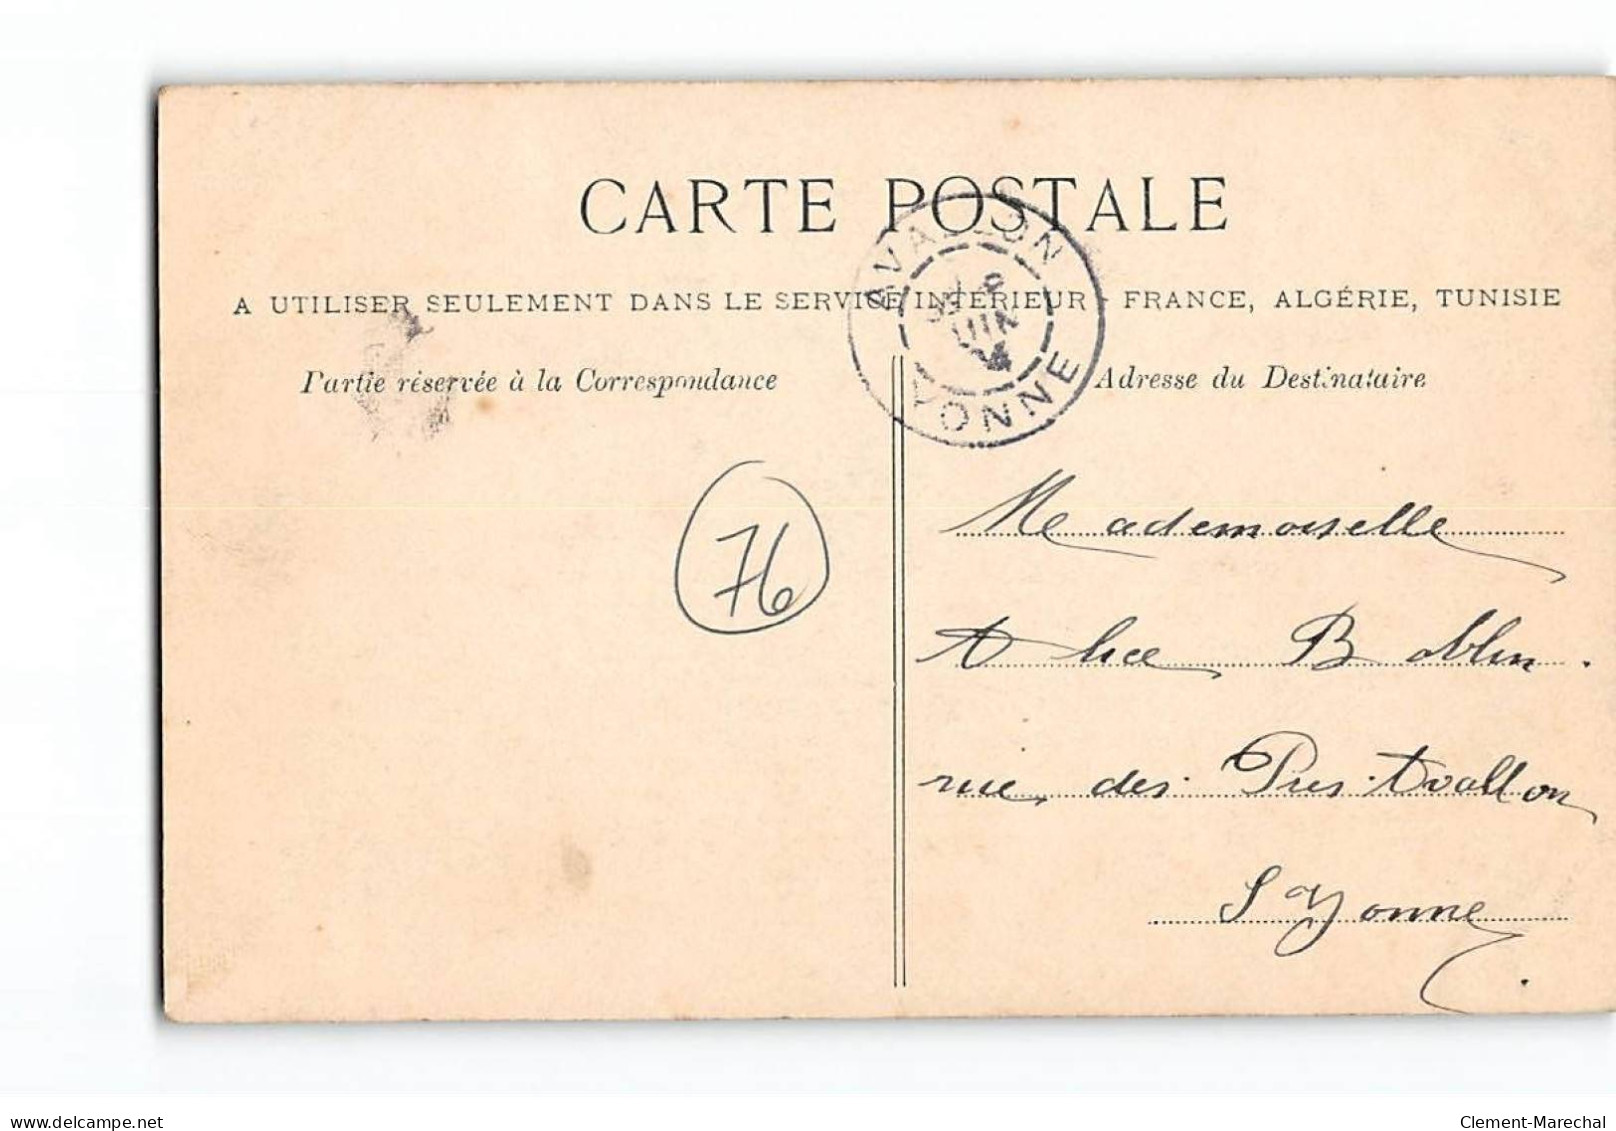 CARTE POSTALE
AVALLON
YONNE
JUIN
A UTILISER SEULEMENT DANS LE SERVICE INTÉRIEUR - FRANCE, ALGÉRIE, TUNISIE
Partie réservée à la Correspondance
Adresse du Destinataire
76
Mademoiselle
Alice Boblin.
rue des Prés Avallon
Yonne
www.delcampe.net
Clement-Marechal